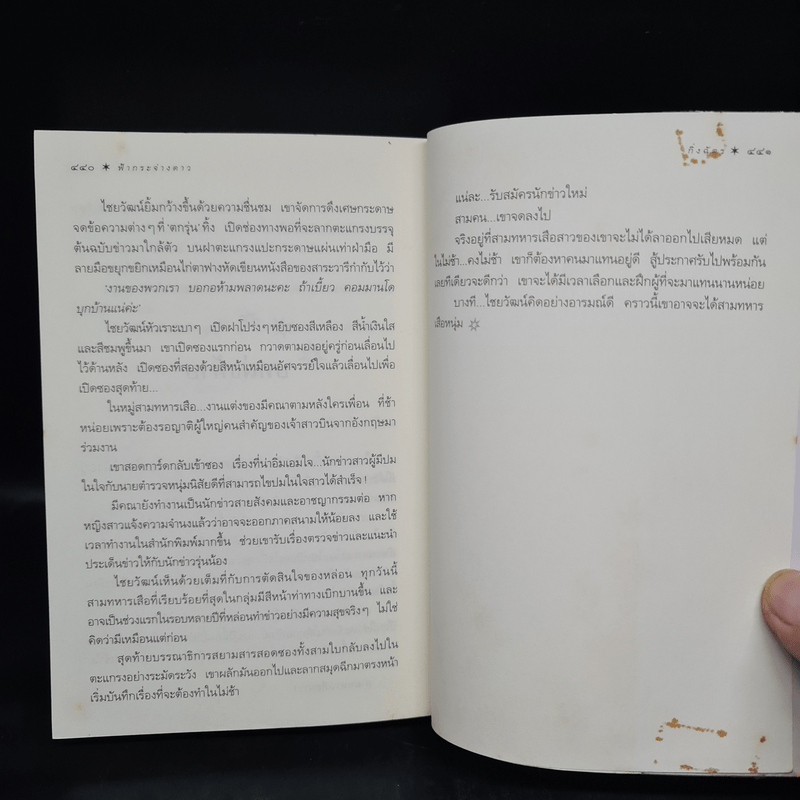 ๔๔๐ ✶ ฟ้ากระจ่างดาว
ไชยวัฒน์ยิ้มกว้างขึ้นด้วยความชื่นชม เขาจัดการดึงเศษกระดาษ
จดข้อความต่างๆ ที่ ‘ตกรุ่น’ ทิ้ง เปิดช่องทางพอที่จะลากตะแกรงบรรจุ
ต้นฉบับข่าวมาใกล้ตัว บนฝาตะแกรงแปะกระดาษแผ่นเท่าฝ่ามือ มี
ลายมือขยุกขยิกเหมือนไก่ตาฟางหัดเขียนหนังสือของสาระวารีกำกับไว้ว่า
‘งานของพวกเรา บอกอห้ามพลาดนะคะ ถ้าเบี้ยว คอมมานโด
บุกบ้านแน่ค่ะ’
ไชยวัฒน์หัวเราะเบาๆ เปิดฝาโปร่งๆ หยิบซองสีเหลือง สีน้ำเงินใส
และสีชมพูขึ้นมา เขาเปิดซองแรกก่อน กวาดตามองอยู่ครู่ก่อนเลื่อนไป
ไว้ด้านหลัง เปิดซองที่สองด้วยสีหน้าเหมือนอัศจรรย์ใจแล้วเลื่อนไปเพื่อ
เปิดซองสุดท้าย...
ในหมู่สามทหารเสือ...งานแต่งของมีคณาตามหลังใครเพื่อน ที่ช้า
หน่อยเพราะต้องรอญาติผู้ใหญ่คนสำคัญของเจ้าสาวบินจากอังกฤษมา
ร่วมงาน
เขาสอดการ์ดกลับเข้าซอง เรื่องที่น่าอิ่มเอมใจ...นักข่าวสาวผู้มีปม
ในใจกับนายตำรวจหนุ่มนิสัยดีที่สามารถไขปมในใจสาวได้สำเร็จ!
มีคณายังทำงานเป็นนักข่าวสายสังคมและอาชญากรรมต่อ หาก
หญิงสาวแจ้งความจำนงแล้วว่าอาจจะออกภาคสนามให้น้อยลง และใช้
เวลาทำงานในสำนักพิมพ์มากขึ้น ช่วยเขารับเรื่องตรวจข่าวและแนะนำ
ประเด็นข่าวให้กับนักข่าวรุ่นน้อง
ไชยวัฒน์เห็นด้วยเต็มที่กับการตัดสินใจของหล่อน ทุกวันนี้
สามทหารเสือที่เรียบร้อยที่สุดในกลุ่มมีสีหน้าท่าทางเบิกบานขึ้น และ
อาจเป็นช่วงแรกในรอบหลายปีที่หล่อนทำข่าวอย่างมีความสุขจริงๆ ไม่ใช่
คิดว่ามีเหมือนแต่ก่อน
สุดท้ายบรรณาธิการสยามสารสอดซองทั้งสามใบกลับลงไปใน
ตะแกรงอย่างระมัดระวัง เขาผลักมันออกไปและลากสมุดฉีกมาตรงหน้า
เริ่มบันทึกเรื่องที่จะต้องทำในไม่ช้า
กิ่งฉัตร ✶ ๔๔๑
แน่ละ...รับสมัครนักข่าวใหม่
สามคน...เขาจดลงไป
จริงอยู่ที่สามทหารเสือสาวของเขาจะไม่ได้ลาออกไปเสียหมด แต่
ในไม่ช้า...คงไม่ช้า เขาก็ต้องหาคนมาแทนอยู่ดี สู้ประกาศรับไปพร้อมกัน
เลยทีเดียวจะดีกว่า เขาจะได้มีเวลาเลือกและฝึกผู้ที่จะมาแทนนานหน่อย
บางที...ไชยวัฒน์คิดอย่างอารมณ์ดี คราวนี้เขาอาจจะได้สามทหาร
เสือหนุ่ม